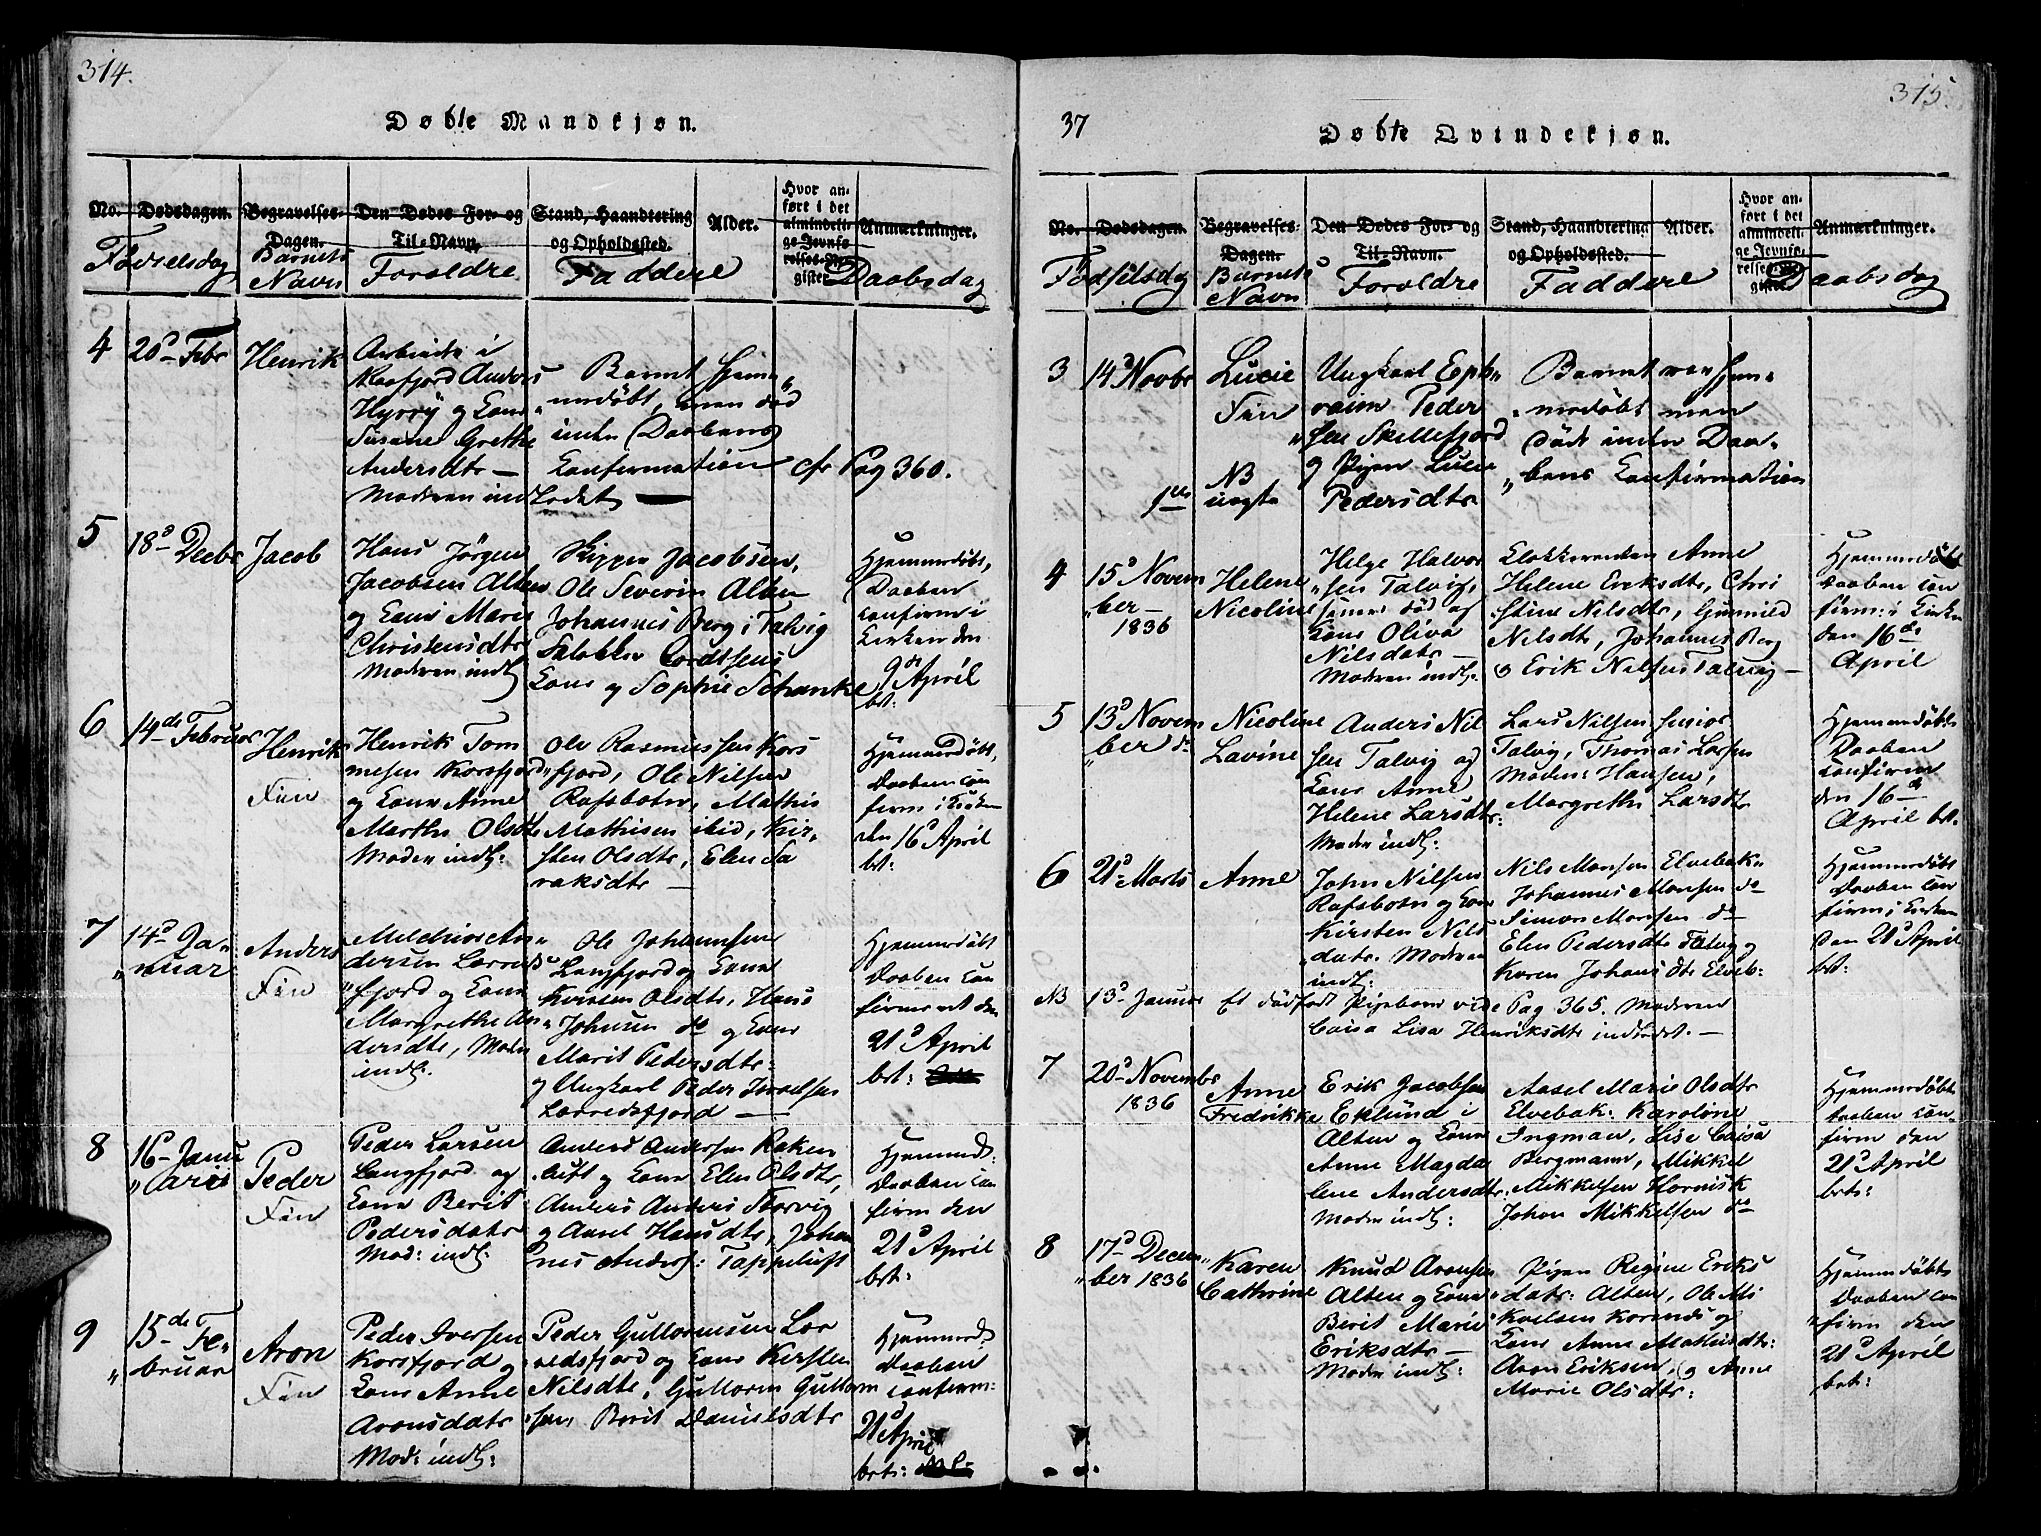 314.
Døbte Mandkjøn.
No. Dødsdagen. Begravelses-Dagen. Den Dødes For- og Til-Navn. Stand, Haandtering og Opholdssted. Alder. Hvor anført i det almindelige Jevnførelses-Register Anmærkninger.
Fødselsdag Barnets Navn Forældre Faddere Daabsdag
4 20d Febr Henrik
Arbeider i
Kaafjord Anders
Hyrry og Kone
Susane Grethe
Andersdtr —
Moderen indledet —
Barnet hjem-
medøbt, men død
inden Daabens
Confirmation cfr Pag 360.
5 18d Decbr Jacob
Hans Jørgen
Jacobsen Alten
og Kone Maren
Christensdtr
Moderen indl:
Skipper Jacobsen,
Ole Severin Alten
Johannes Berg i Talvig
Klokker Cordtsens
Kone og Sophie Schanke
Hjemmedøbt,
Daaben
confirm i
Kirken den
9de April
bet:
6 14de Februar Henrik
Fin
Henrik Tom
mesen Korsfjord
og Kone Anne
Marthe Olsdtr
Moder indl:
Ole Rasmussen Kors
fjord, Ole Nilsen
Rafsbotn, Mathis
Mathisen ibid, Kir-
sten Olsdtr, Elen Sa
raksdtr —
Hjemmedøbt,
Daaben con
firm i Kirken
den 16d April
bet:
7 14d Ja-
nuar
Anders
Fin
Melchior An-
dersen Lerreds
fjord og Kone
Margrethe An-
dersdtr, Moder
indl.
Ole Johannsen
Langfjord og Kone
Kirsten Olsdtr, Hans
Johnsen do og Kone
Marit Pedersdtr:
og Ungkarl Peder Israelsen
Lerredsfjord —
Hjemmedøbt
Daaben con
firmeret den
21d April
bet:
8 16d Janu
aris
Peder
Fin
Peder Larsen
Langfjord og
Kone Berit
Pedersdatr
Mod: indl:
Anders Andersen Koken
luft og Kone Elen Olsdtr,
Anders Anders Storvig
og Aasel Hansdtr, Johan
nes Anders: Tappeluft
Hjemmed:
Daaben con
firm den
21d April
bet:
9 15de Fe-
bruar
Aron
Fin
Peder Iversen
Korsfjord og
Kone Anne
Aronsdatr
Mod: indl:
Peder Guttormsen Ler
redsfjord og Kone Kirsten
Nilsdtr, Guttorm Guttorm
sen, Berit Danielsdtr
Hjemmed:
Daaben
confirm:
21d April
bet:
37
315.
Døbte Qvindekjøn.
No. Dødsdagen. Begravelses-Dagen. Den Dødes For- og Til-Navn. Stand, Haandtering og Opholdssted. Alder. Hvor anført i det almindelige Jevnførelses-Register Anmærkninger.
Fødselsdag Barnets Navn Forældre Faddere Daabsdag
3 14d Novbr Lucie
Fin
NB
1ste uægte
Ungkarl Eph-
raim Peder
sen Skillefjord
og Pigen Lucie
Pedersdtr
Barnet var hjem-
medøbt men
døde inden Daa-
bens Confirmation
4 15d Novem
ber —
1836
Helene
Nicoline
Helge Halvor
sen Talvig,
senere død og
Kone Oliva
Nilsdatr —
Moderen indl:
Klokkerenken Anne
Helene Eriksdtr, Chri
stine Nilsdtr, Gunnild
Nilsdtr, Johannes Berg
og Erik Nilsen Talvig —
Hjemmedøbt
Daaben con
firm: i Kirken
den 16de
April
5 13d Novem
ber do
Nicoline
Lavine
Anders Nil
sen Talvig og
Kone Anne
Helene Larsdtr:
Moder indl:
Lars Nilsen senior
Talvig, Thomas Larsen
Moden: Hansen,
Margrethe Larsdtr
Hjemmedøbt
Daaben
confirm
den 16de
April bet.
6 21d Marts Anne
John Nilsen
Rafsbotn og Kone
Kirsten Nils
datr. Moderen
indl:
Nils Monsen Elvebak
Johannes Monsen do
Simon Monsen do
Elen Pedersdtr Talvig
Karen Johansdtr Elveb:
Hjemmedøbt
Daaben con
firm: i Kirken
den 21d April
bet:
NB 13d Januar Et dødfødt Pigebarn vide Pag 365. Moderen
Caisa Lisa Henriksdtr indledet. —
7 20d Novembr
1836
Anne
Fredrikke
Erik Jacobsen
Eklund i
Alten og Kone
Anne Magda
lene Andersdtr.
Moder indl:
Aasel Marie Olsdtr
Elvebak: Karoline
Ingman, Lise Caisa
Bergmann, Mikkel
Mikkelsen Hornisk
Johan Mikkelsen do
Hjemmedøbt
Daaben con
firm den
21d April
bet:
8 17d Decem-
ber 1836
Karen
Cathrine
Knud Aronsen
Alten og Kone
Berit Marie
Eriksdtr —
Moder indl:
Pigen Regine Eriks
datr: Alten, Ole Mi
kelsen Korsnes og
Kone Anne Mathisdtr:
Aron Eriksen, og Anne
Marie Olsdtr:
Hjemmedøbt
Daaben con
firm den
21d April
bet: